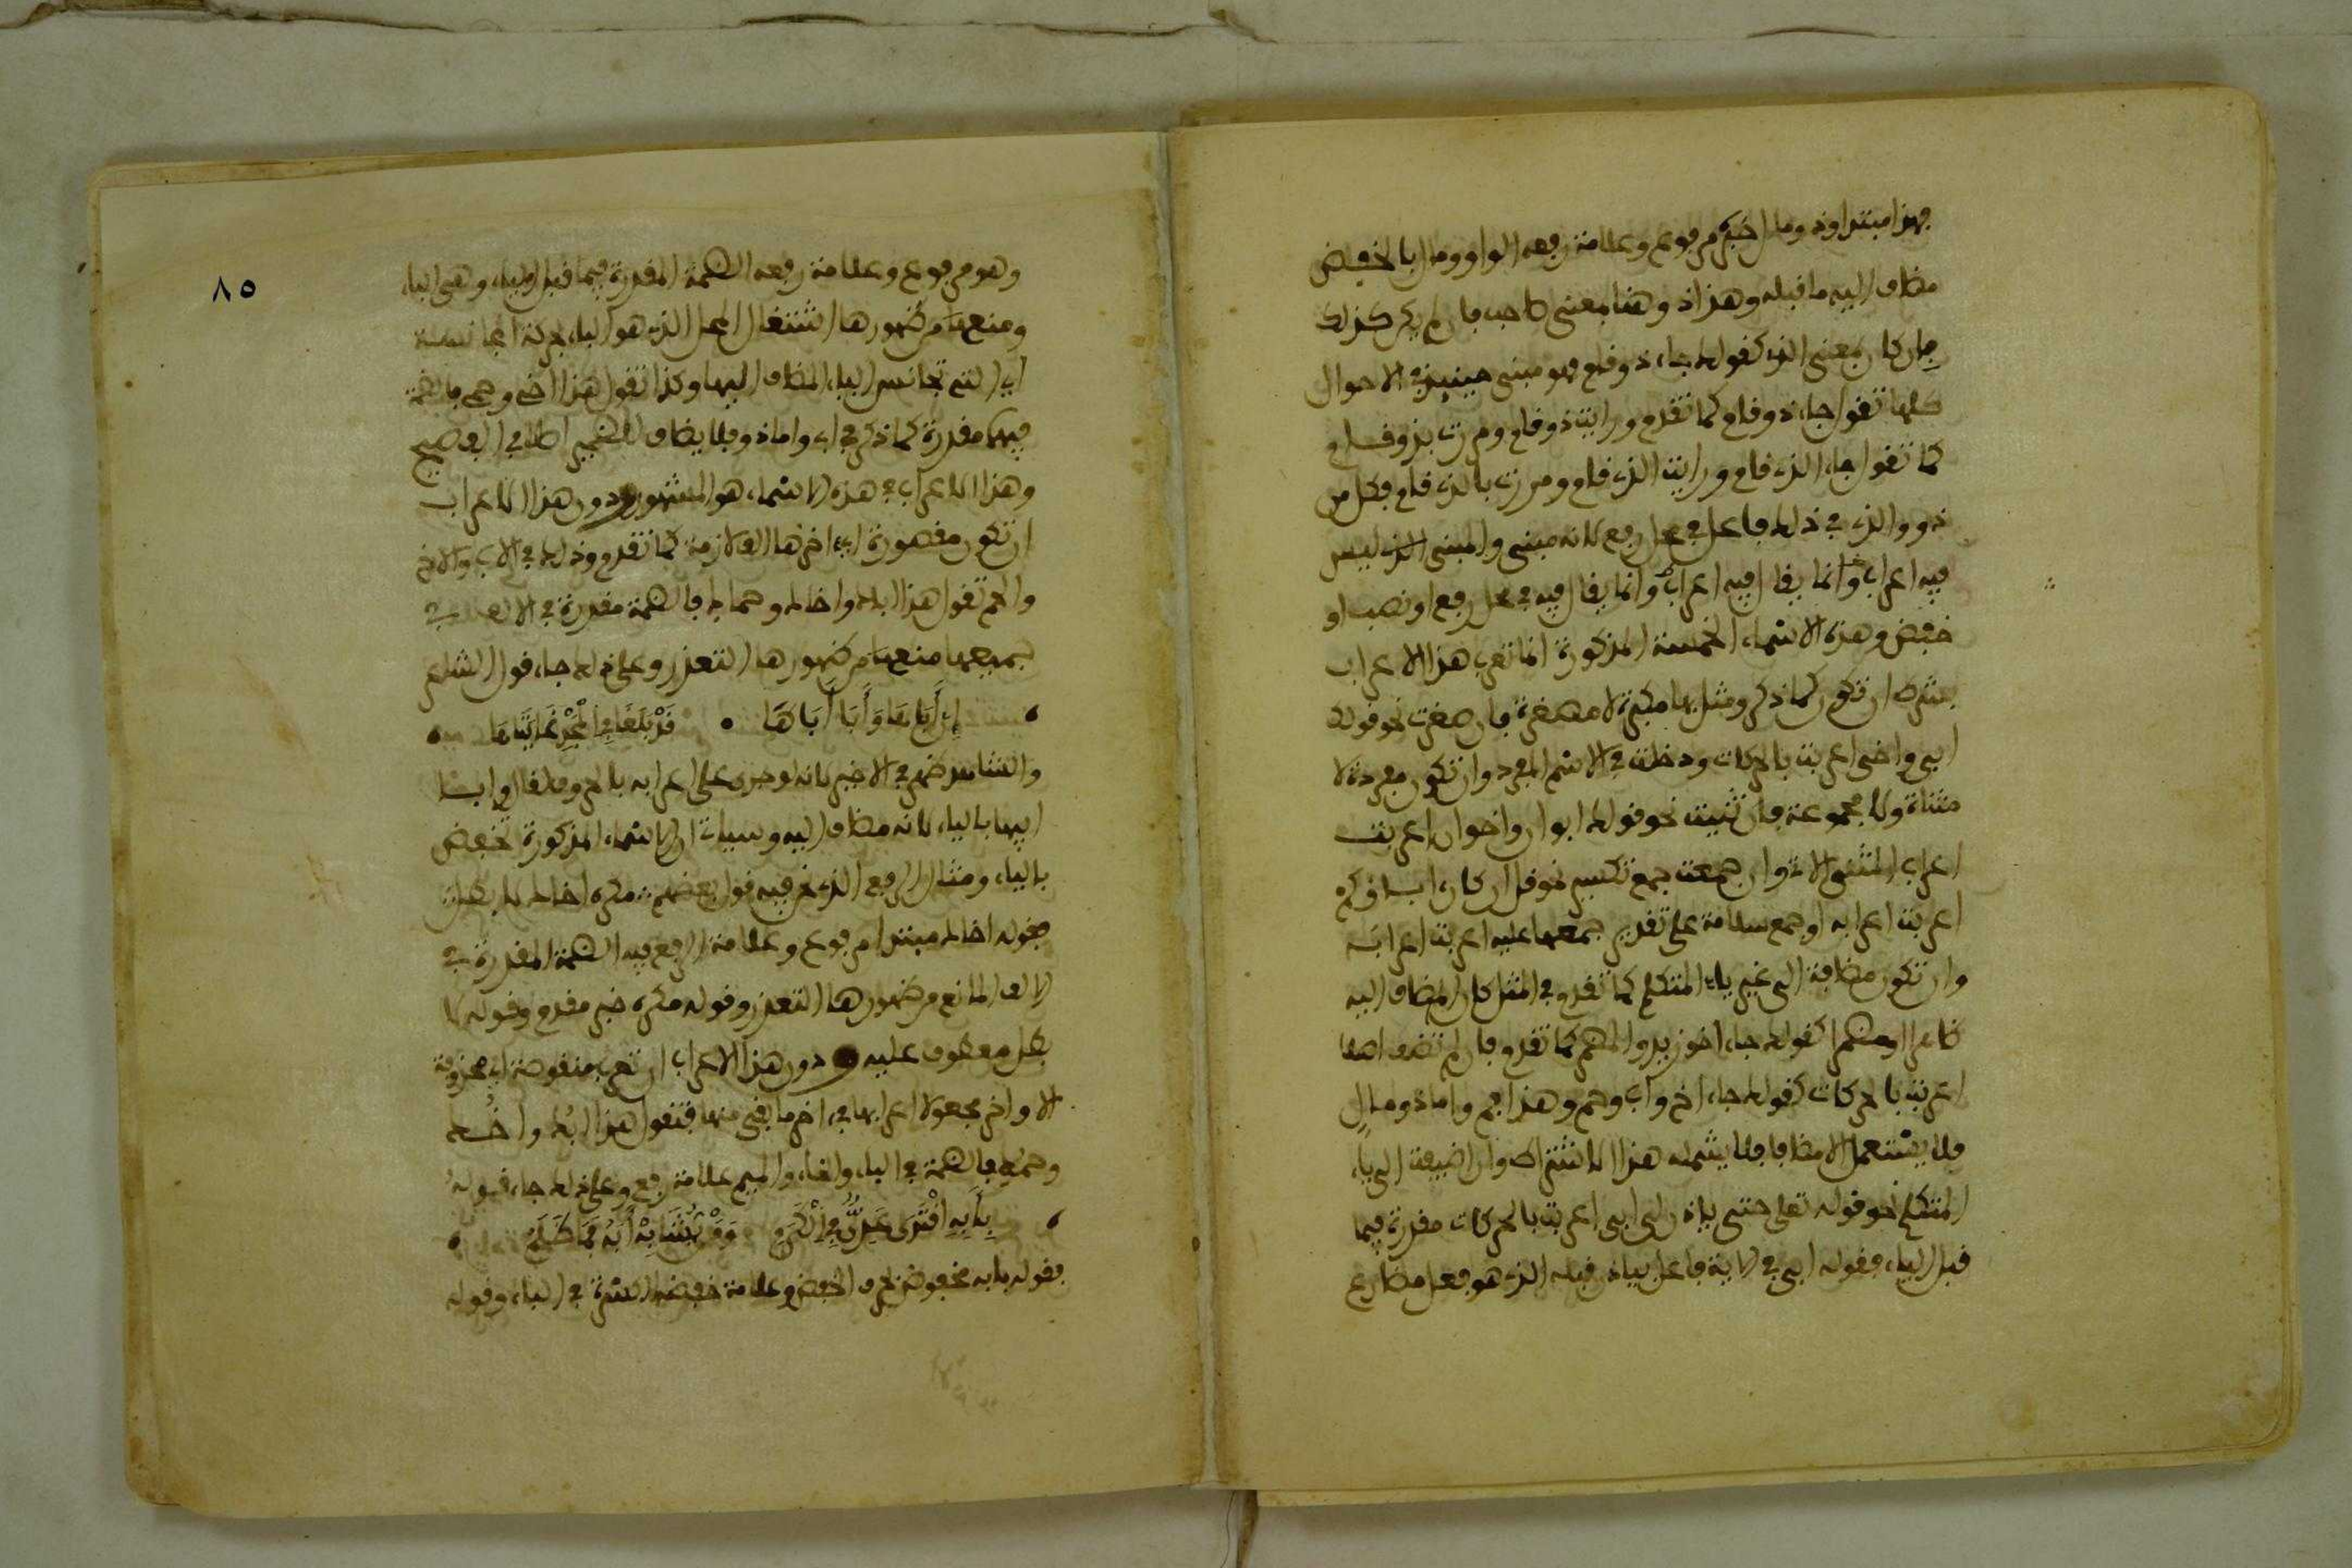 فهذا مبتدا وذو مال خبره مرفوع وعلامة رفعه الواو ومال بالخفض
مضاف اليه ما قبله وهذا ذو هنا بمعنى صاحب فان لم يكن كذلك
بل كان بمعنى الذي كقولك جاء ذو قام فهو مبني حينيذ في الاحوال
كلها تقول جاء ذو قام كما تقدم ورايت ذو قام ومررت بذو قام
كما تقول جاء الذي قام ورايت الذي قام ومررت بالذي قام فكل من
ذو والذي في ذلك فاعل في محل رفع لانه مبني والمبني الذي ليس
فيه اعراب وانما يقال فيه اعراب وانما يقال فيه في محل رفع او نصب او
خفض وهذه الاسماء الخمسة المذكورة انما تعرب هذا الاعراب
بشرط ان تكون كما ذكر ومثل بها مكبرة لا مصغرة فان صغرت نحو قولك
ابي واخي اعربت بالحركات ودخلت في الاسم المفرد وان تكون مفردة لا
مثناة ولا مجموعة فان ثنيت نحو قولك ابوان واخوان اعربت
اعراب المثنى الاتي وان جمعت جمع تكسير نحو قل ان كان اباوكم
اعربت اعرابه او جمع سلامة على تقدير جمعها عليه اعربت اعرابه
وان تكون مضافة الى غير ياء المتكلم كما تقدم في المثل كان المضاف اليه
ظاهرا او مضمرا كقولك جاء اخو زيد والمضمر كما تقدم فان لم تضف اصلا
اعربت بالحركات كقولك جاء اخ واب وحم وهذا فم واما ذو مال
فلا يستعمل الا مضافا فلا يشمله هذا الاشتراط وان اضيفت الى ياء
المتكلم نحو قوله تعلى حتى ياذن لي ابي اعربت بالحركات مقدرة فيما
قبل الياء فقوله ابي في الاية فاعل بياذن قبله الذي هو فعل مضارع
٨٥
وهو مرفوع وعلامة رفعه الضمة المقدرة فيما قبل الياء وهي الباء
ومنع من ظهورها اشتغال المحل الذي هو الباء بحركة المجانسة
اي التي تجانس الياء المضاف اليها وكذا تقول هذا اخي وحمي فالضمة
فيهما مقدرة كما ذكر في اب واما ذو فلا يضاف للضمير اصلا في الفصيح
وهذا الاعراب في هذه الاسماء هو المشهور ودون هذا الاعراب
ان تكون مقصورة اي اخرها الف لازمة كما تقدم وذلك في الاب والاخ
والحم تقول هذا اباك واخاك وحماك فالضمة مقدرة في الالف في
جميعها منع من ظهورها التعذر وعلى ذلك جاء قول الشاعر
إن أباها وأبا أباها • قد بلغا في المجد غايتاها
والشاهد ظهر في الاخير لانه لو جرى على اعرابه بالحروف لقال وابا
ابيها بالياء لانه مضاف اليه وسيات ان الاسماء المذكورة تخفض
بالياء ومثال الرفع الذي نحن فيه قول بعضهم مكره اخاك لا بطل
فقوله اخاك مبتدا مرفوع وعلامة الرفع فيه الضمة المقدرة في
الالف المانع من ظهورها التعذر وقوله مكره خبر مقدم وقوله لا
بطل معطوف عليه ودون هذا الاعراب ان تعرب منقوصة اي محذوفة
الاواخر مجعولا اعرابها في اخر ما بقي منها فتقول هذا ابك واخك
وحمك فالضمة في الباء والخاء والميم علامة رفع وعلى ذلك جاء قوله
بأبه اقتدى عدي في الكرم ومن يشابه أبه فما ظلم
فقوله بابه مخفوض بحرف الخفض وعلامة خفضه الكسرة في الباء وقوله